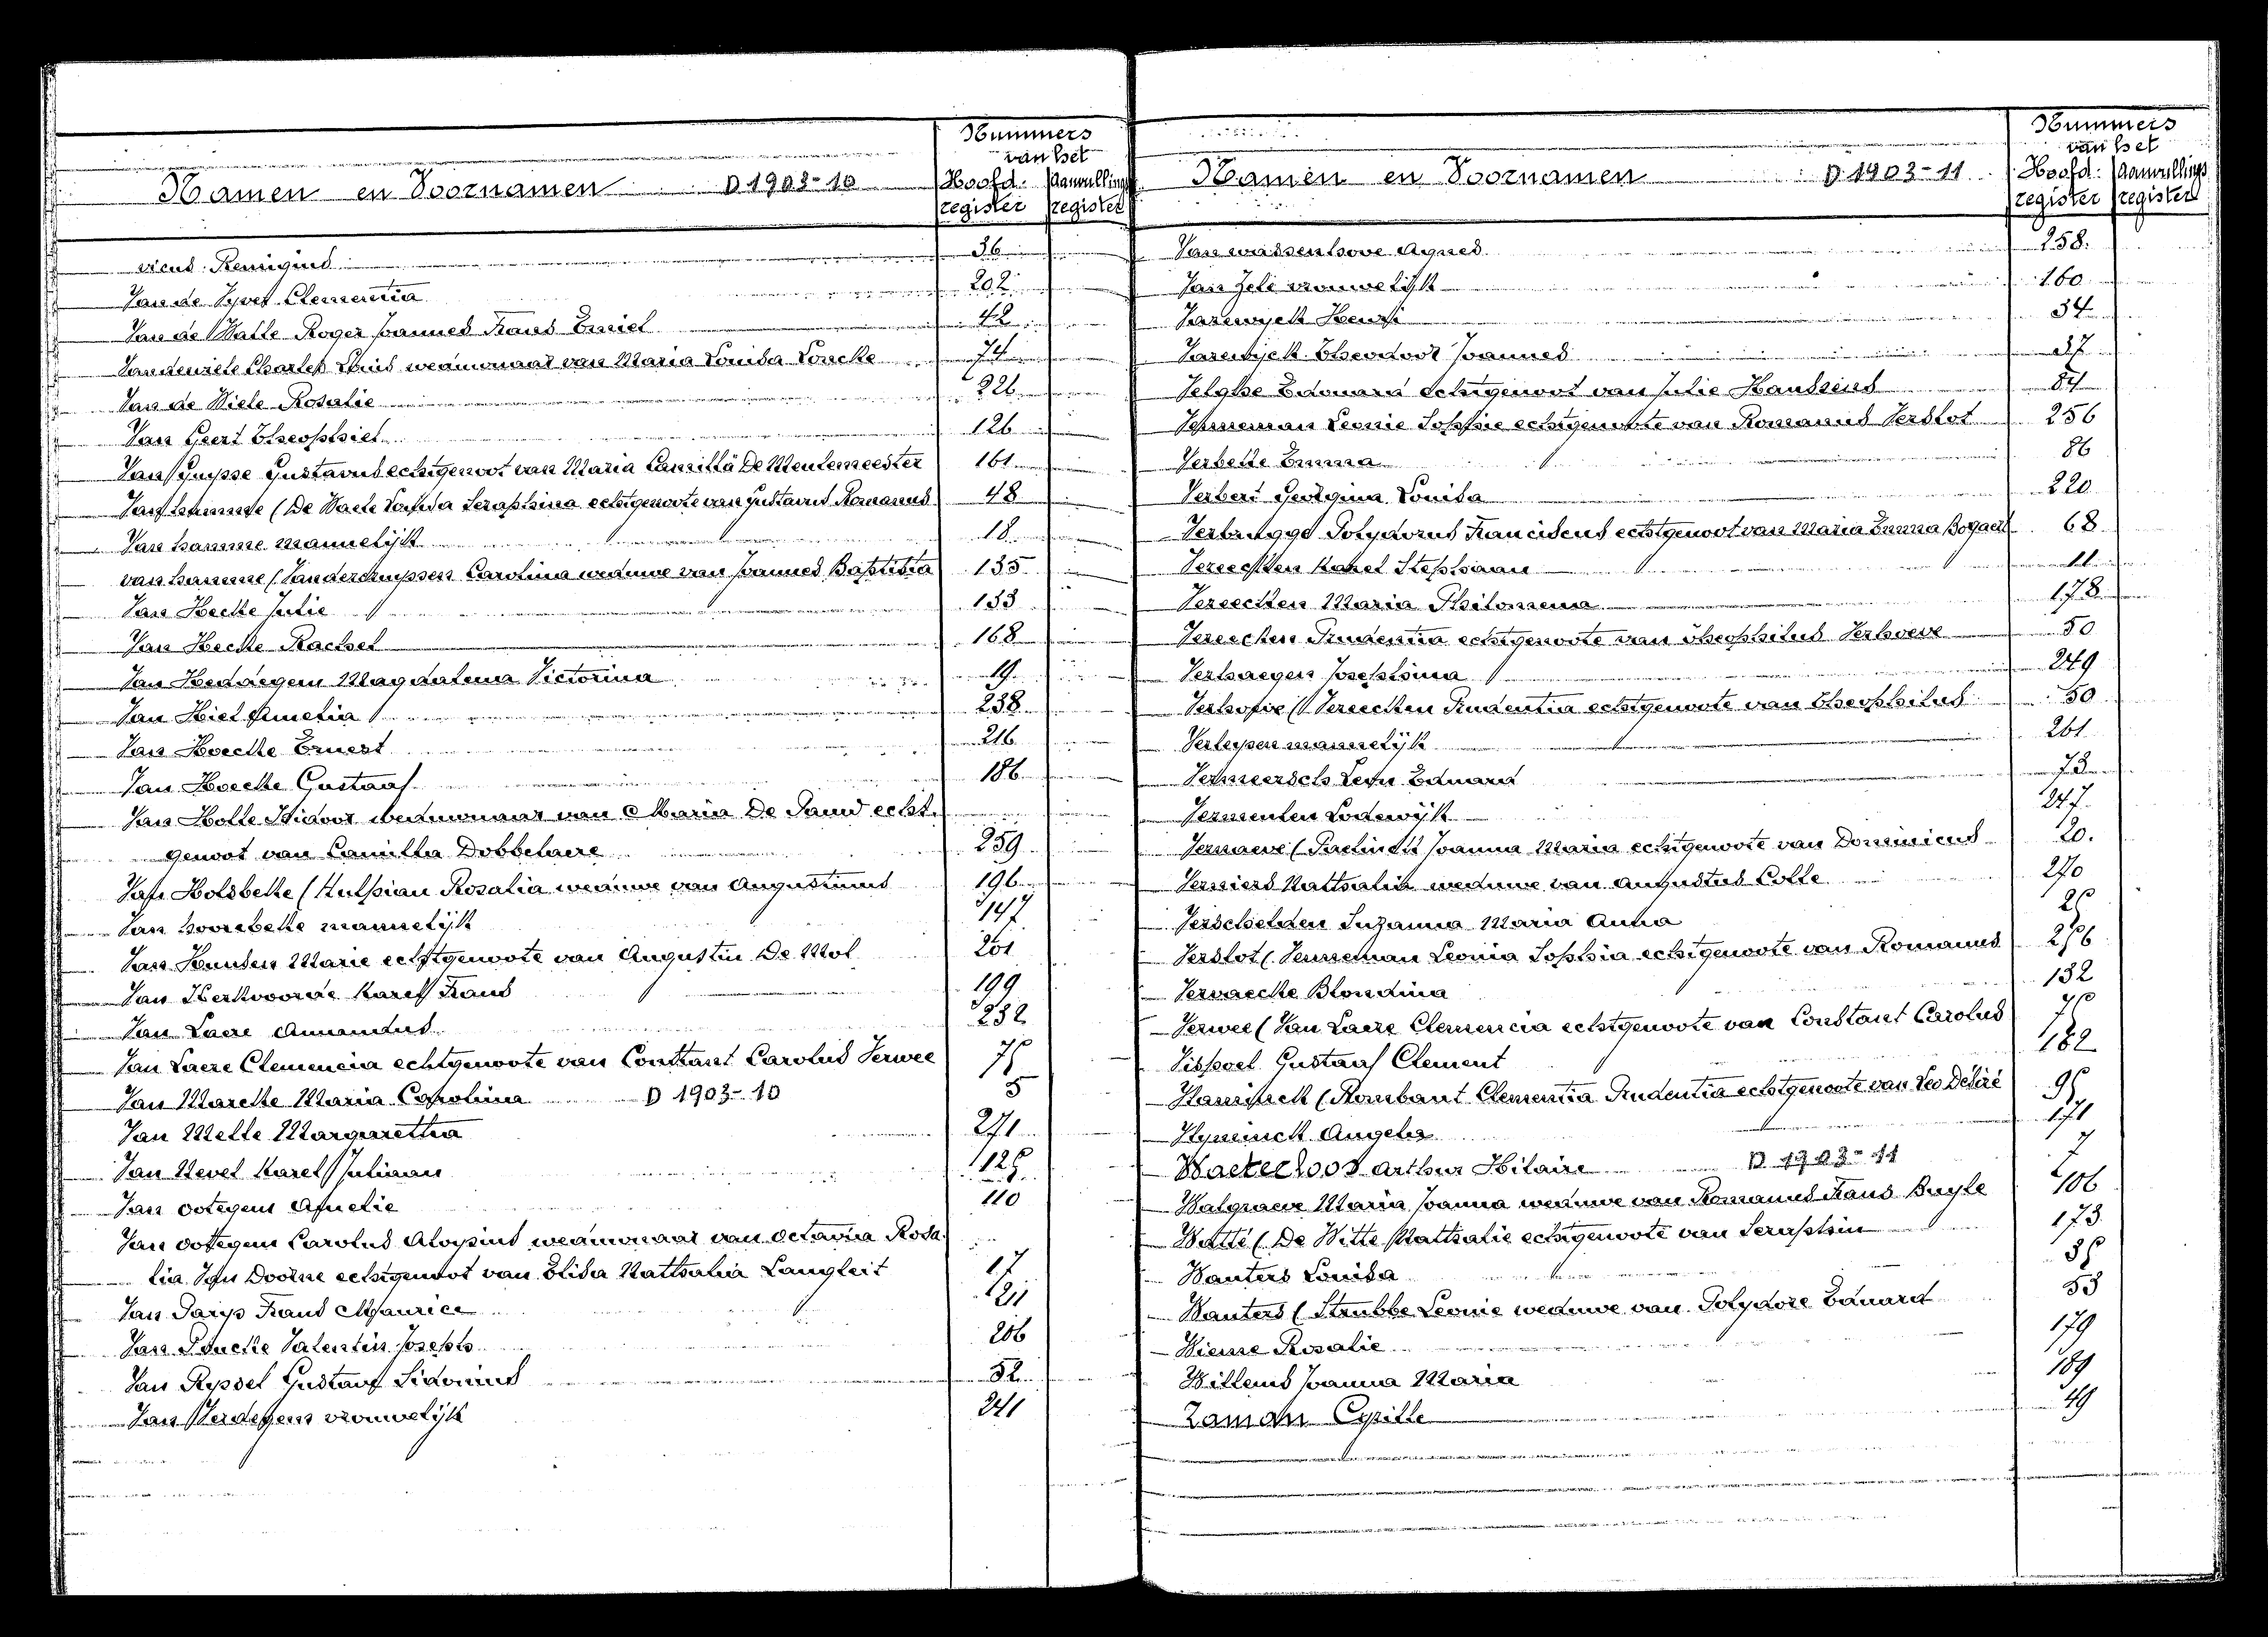 Nummers
van het
Namen en Voornamen D 1903-10 Hoofd. Aanvullings
register register
Remigius 36
Van de Clementia 202
Van de Walle Roger Joannes Frans Emiel 42
Vandenriele Charles Louis weduwnaar van Maria Louisa Voncke 74
Van de Wiele Rosalie 226
Van Geert Theophiel 126
Van Guysse Gustavus echtgenoot van Maria Camilla De Meulemeester 161
Van hamme (De Waele Seraphina echtgenoote van Gustavus Romanus 48
Van hamme mannelijk 18
van hamme (Vandercruyssen Carolina weduwe van Joannes Baptista 135
Van Hecke Julie 133
Van Hecke Rachel 168
Van Heddegem Magdalena Victorina 19
Van Hiel Amelia 238
Van Hoecke Ernest 216
Van Hoecke Gustaaf 186
Van Holle Isidoor weduwnaar van Maria De Sand echt.
genoot van Camilla Dobbelaere 259
Van Holsbeke (Hulpiau Rosalia weduwe van Augustinus 196
Van hoorebeke mannelijk 147
Van Hunsen Marie echtgenoote van Augustin De Mol 251
Van Kerkvoorde Karel Frans 199
Van Laere Amandus 232
Van Laere Clemencia echtgenoote van Constant Carolus Verwee 75
Van Marcke Maria Carolina D 1903-10 5
Van Melle Margaretha 271
Van Nevel Karel Juliaan 125
Van ootegem Amelie 110
Van ootegem Carolus Aloysius weduwnaar van octavia Rosa.
lia Van Doorne echtgenoot van Elisa Nathalia Langleit 17
Van Parys Frans Maurice 121
Van Poucke Valentin Joseph 206
Van Ryssel Gustaaf Sidonius 52
Van vrouwelijk 241
Nummers
van het
Namen en Voornamen D. 1903-11 Hoofd. Aanvullings
register register
Van wassenhove Agnes 258.
Van Zele vrouwelijk 160
Varewyck Henri 34
Varewyck Theodoor Joannes 27
Velghe Edouard echtgenoot van Julie Haussens 84
Venneman Leonie Sophie echtgenoote van Romanus Verslot 256
Verbeke Emma 86
Verbert Georgina Louisa 220
Verbrugge Polydorus Franciscus echtgenoot van Maria Emma Bogaert 68
Vereecken Karel Stephaan 11
Vereecken Maria Philomena 178
Vereecken Prudentia echtgenoote van Theophilus Verhoeve 50
Verhaegen Josephina 249
Verhoeve (Vereecken Prudentia echtgenoote van Theophilus 50
Verleysen mannelijk 261
Vermeersch Leon Eduard 72
Vermeulen Lodewijk 247
Vernaeve ( Joanna Maria echtgenoote van Dominicus 20.
Verniers Nathalia weduwe van Augustus Colle 270
Verschelden Suzanna Maria Anna 26
Verslot (Venneman Leonia Sophia echtgenoote van Romanus 256
Vervaecke Blondina 132
Verwee (Van Laere Clemencia echtgenoote van Constant Carolus 75
Vispoel Gustaaf Clement 182
(Rombaut Clementia Prudentia echtgenoote van Leo Desiré 95
Vyncinck Angela 171
Waeterloos Arthur Hilaire D 1903-11 7
Walgraeve Maria Joanna weduwe van Romanus Frans Buyle 106
Watté (De Witte Nathalie echtgenoote van Seraphin 173
Wauters Louisa 35
Wauters (Strubbe Leonie weduwe van Polydore Eduard 53
Wieme Rosalie 179
Willems Joanna Maria 189
Zaman Cyrille 49